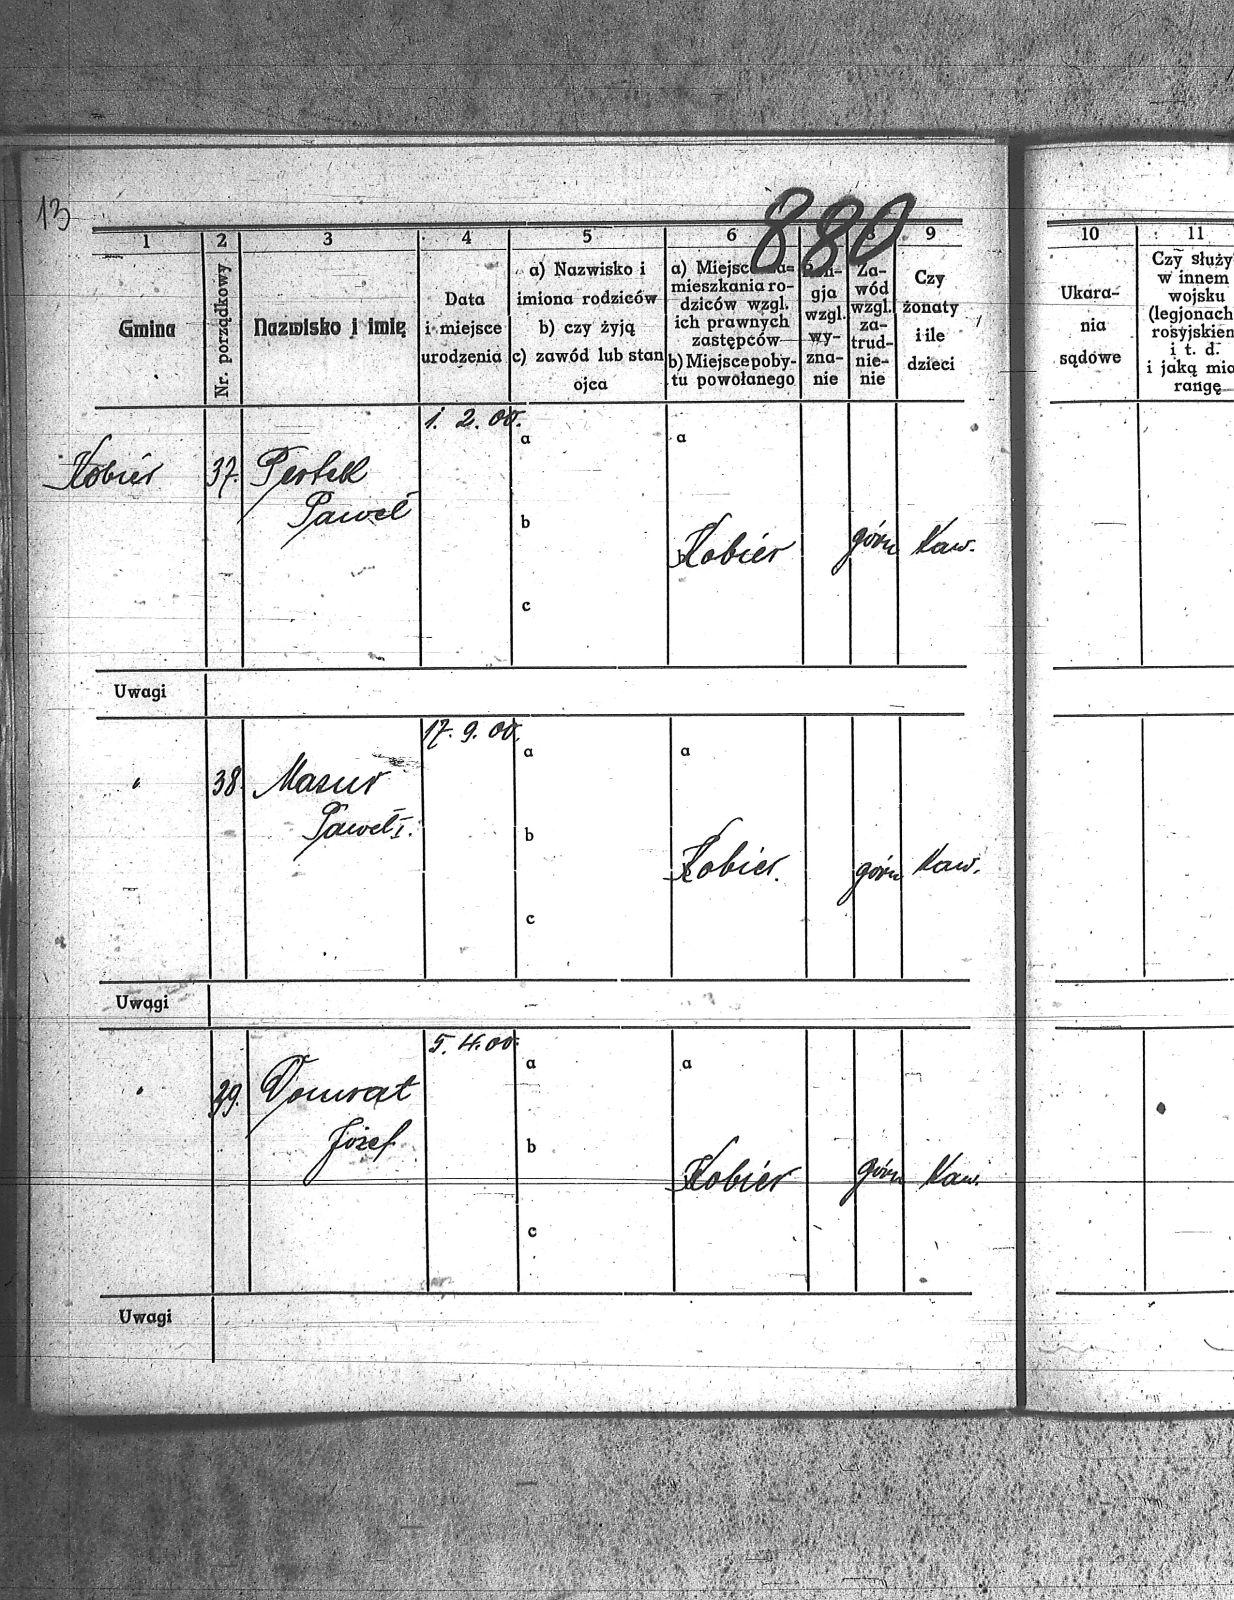 13
880
1 2 3 4 5 6 8 9 10 11
Gmina
Nr. porządkowy
Nazwisko i imię
Data
i miejsce
urodzenia
a) Nazwisko i
imiona rodziców
b) czy żyją
c) zawód lub stan
ojca
a) Miejsce za=
mieszkania ro-
dziców wzgl.
ich prawnych
zastępców
b) Miejsce poby-
tu powołanego
gja
wzgl.
wy-
zna-
nie
Za-
wód
wzgl.
za-
trud-
nie-
nie
Czy
żonaty
i ile
dzieci
Ukara-
nia
sądowe
Czy służy
w innem
wojsku
(legjonach
rosyjskiem
i t. d.
i jaką mia
rangę
1. 2. 00.
a a
Kobiér 37. Pertek
Paweł
b
b Kobiér górn Kaw.
c
Uwagi
17. 9. 00.
a a
" 38. Mazur
Paweł I.
b
Kobier. górn Kaw.
c
Uwagi
5. 4. 00.
a a
" 39.
Józef
b
Kobiér górn Kaw.
c
Uwagi